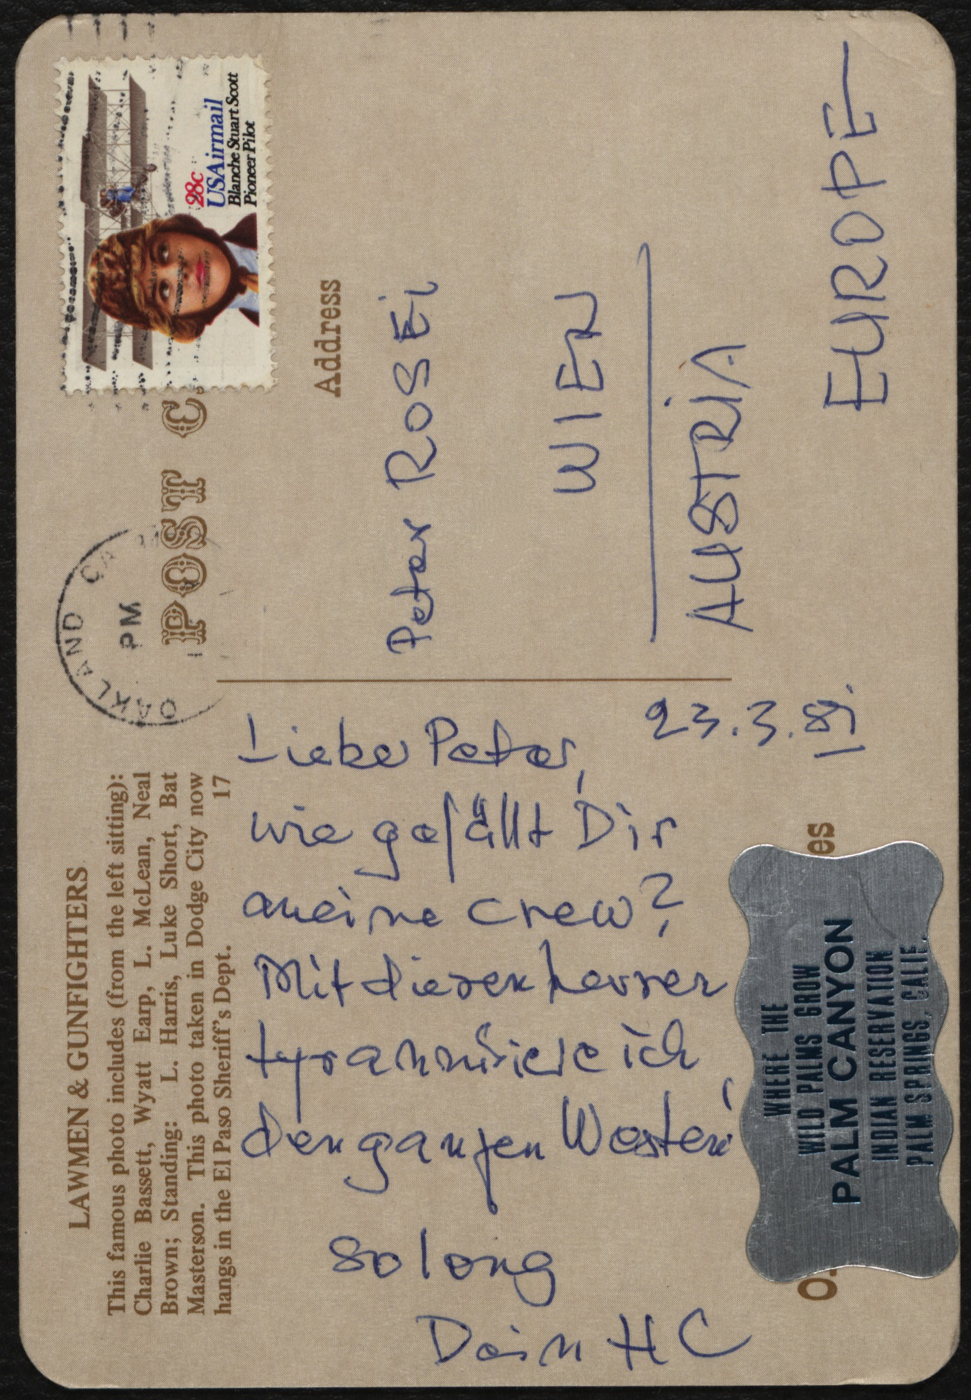 LAWMEN & GUNFIGHTERS
This famous photo includes (from the left sitting):
Charlie Bassett, Wyatt Earp, L. McLean, Neal
Brown; Standing: L. Harris, Luke Short, Bat
Masterson. This photo taken in Dodge City now
hangs in the El Paso Sheriff's Dept. 17
OAKLAND CA
PM
POST C
28c
USAirmail
Blanche Stuart Scott
Pioneer Pilot
Address
Lieber Peter,
wie gefällt Dir
meine crew?
Mit diesen herren
tyrannisiere ich
den ganzen Westen!
so long
Dein HC
23.3.
Peter ROSEi
WIEN
AUSTRiA
EUROPE
es
WHERE THE
WILD PALMS GROW
PALM CANYON
INDIAN RESERVATION
PALM SPRINGS, CALIF.